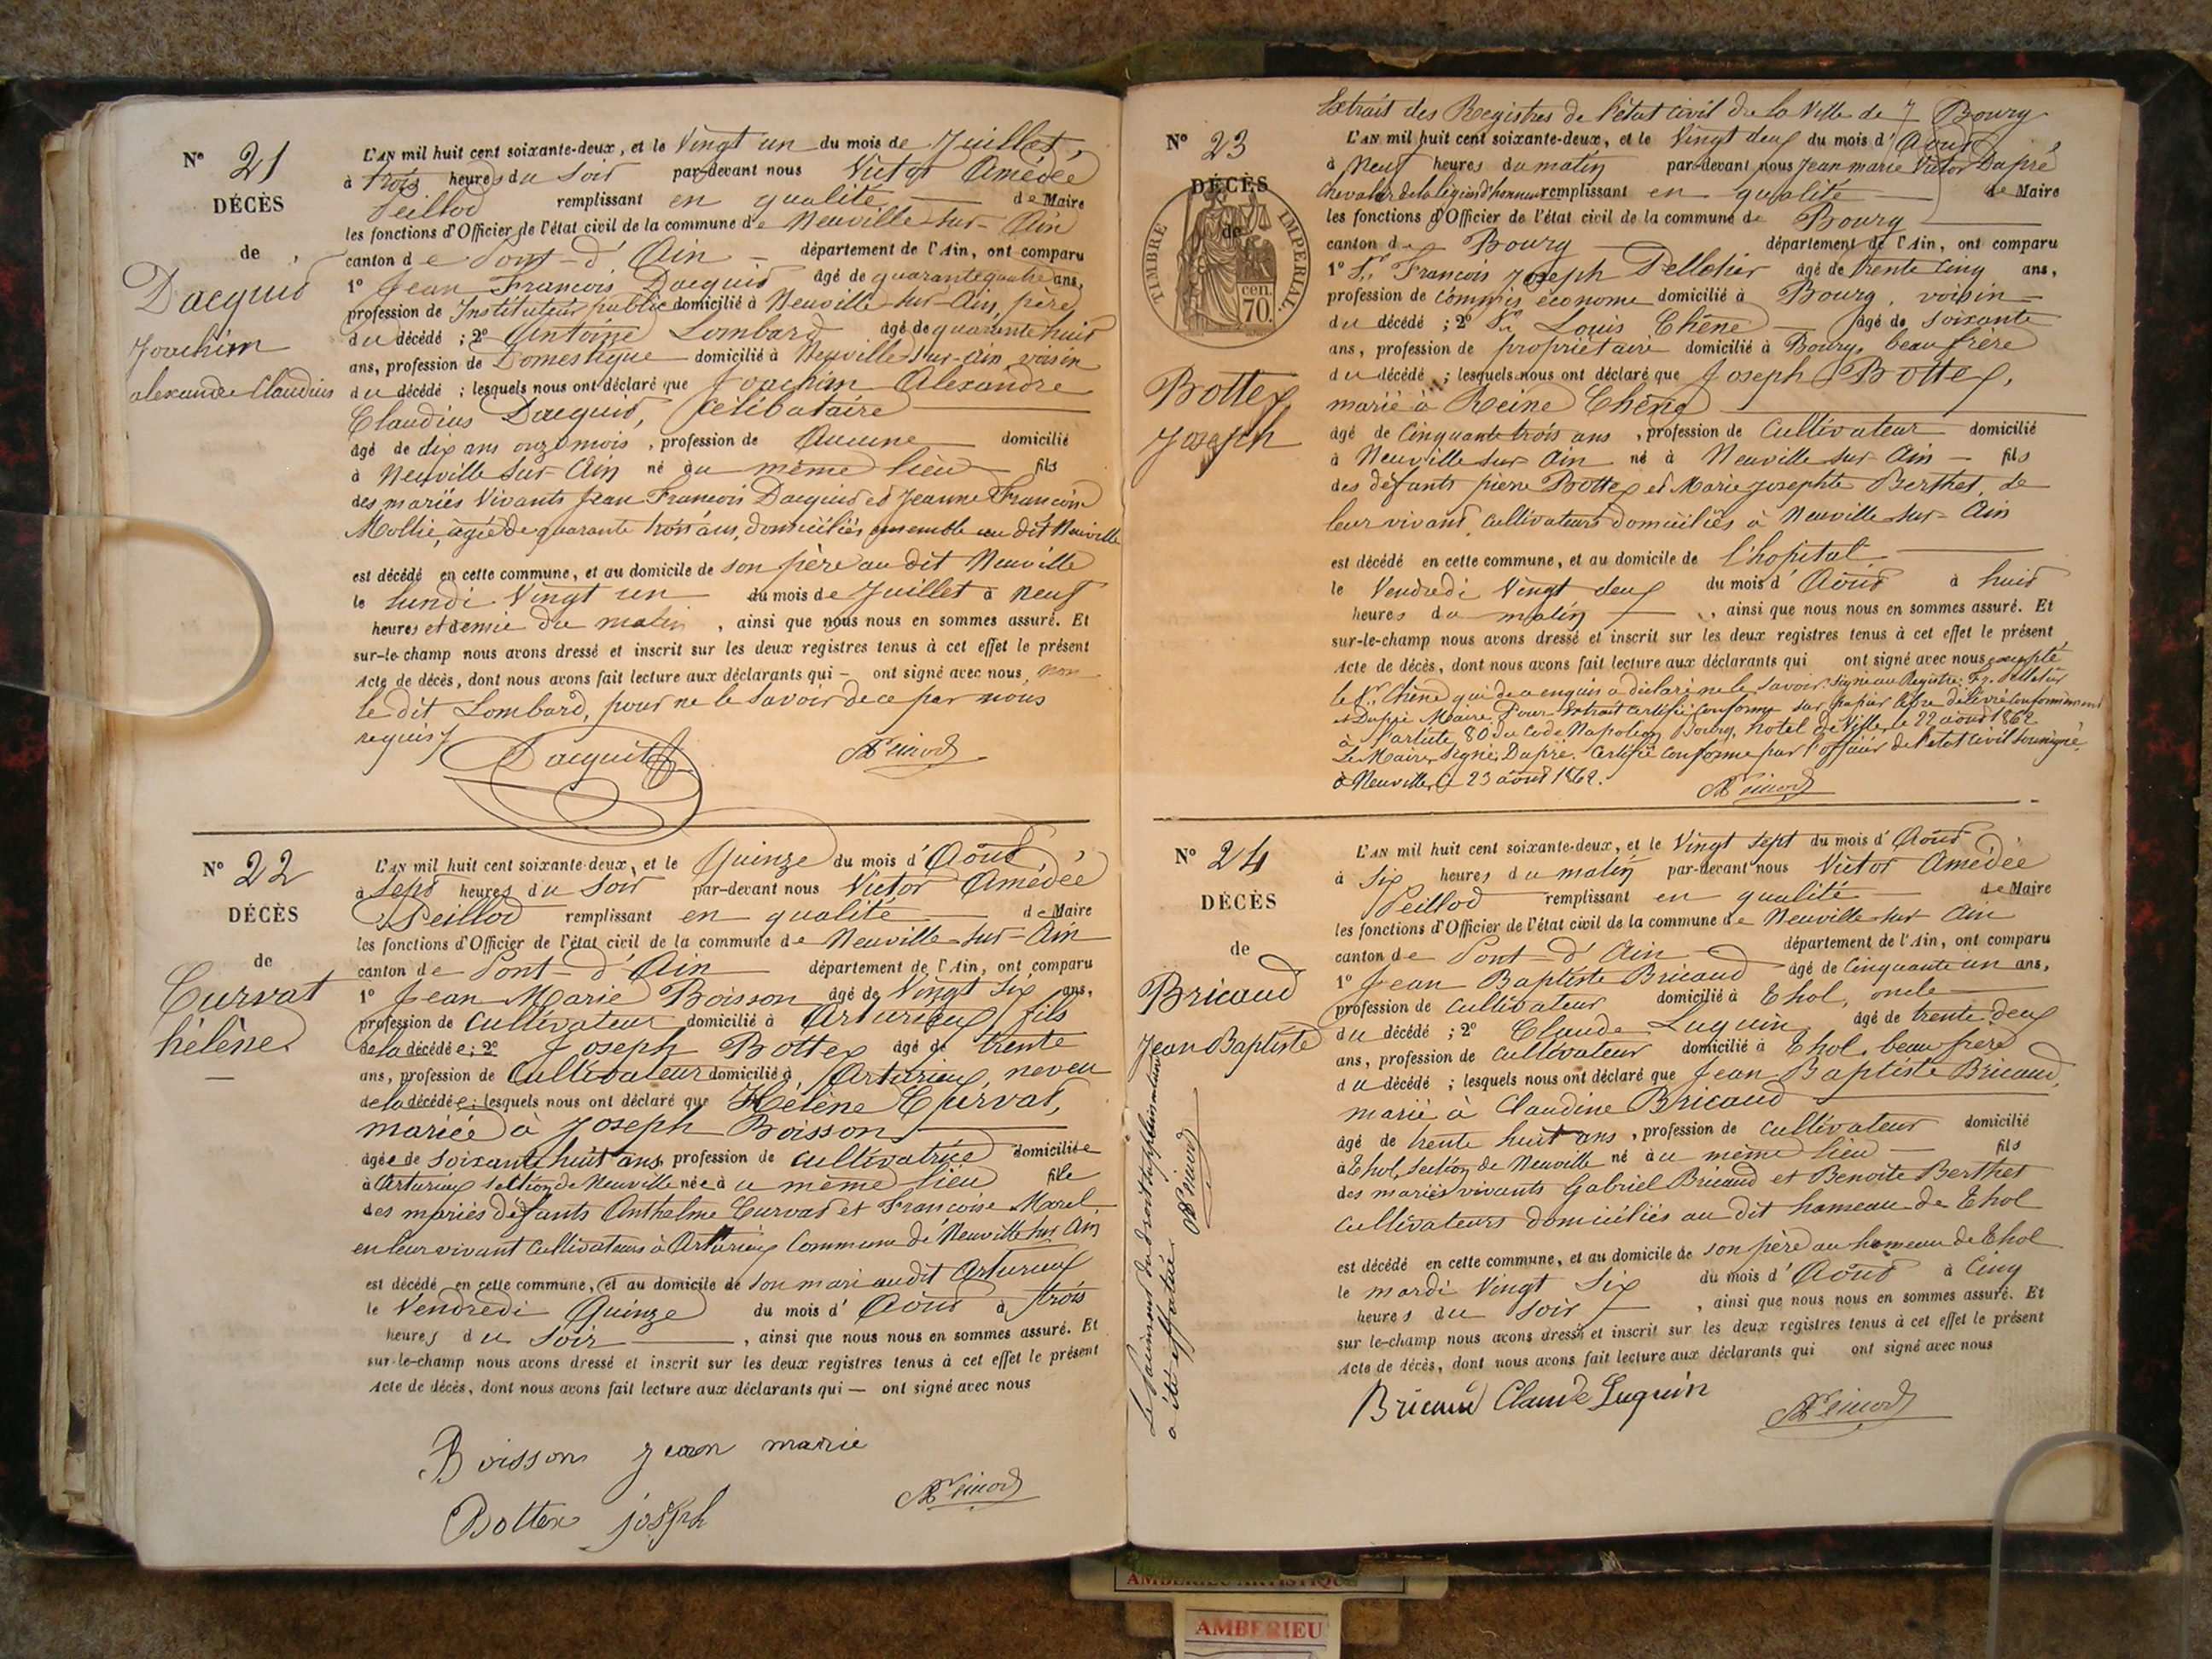 N° 21
DÉCÈS
de
Dacquin
Joachim
alexandre Claudius
L'AN mil huit cent soixante-deux, et le Vingt un du mois de Juillet,
à trois heures du Soir par-devant nous Victor Amédée
Peillod remplissant en qualité de Maire
les fonctions d'Officier de l'état civil de la commune de Neuville-sur-Ain
canton de Pont-d'Ain département de l'Ain, ont comparu
1° Jean François Dacquin âgé de quarante quatre ans,
profession de Instituteur public domicilié à Neuville-sur-Ain, père
du décédé ; 2° Antoine Lombard âgé de quarante huit
ans, profession de Domestique domicilié à Neuville-sur-Ain voisin
du décédé ; lesquels nous ont déclaré que Joachim Alexandre
Claudius Dacquin, célibataire
âgé de dix ans onze mois, profession de Aucune domicilié
à Neuville sur Ain né au même lieu fils
des mariés Vivants Jean François Dacquin et Jeanne Françoise
Mollie, agée de quarante trois ans, domiciliés ensemble au dit Neuville
est décédé en cette commune, et au domicile de son père au dit Neuville
le lundi Vingt un du mois de Juillet à neuf
heures et demie du matin, ainsi que nous nous en sommes assuré. Et
sur-le-champ nous avons dressé et inscrit sur les deux registres tenus à cet effet le présent
Acte de décès, dont nous avons fait lecture aux déclarants qui — ont signé avec nous, non
le dit Lombard, pour ne le Savoir de ce par nous
requis
Dacquin
N° 22
DÉCÈS
de
Curvat
hélène
L'AN mil huit cent soixante-deux, et le Quinze du mois d'Août,
à Sept heures du Soir par-devant nous Victor Amédée
Peillod remplissant en qualité de Maire
les fonctions d'Officier de l'état civil de la commune de Neuville-sur-Ain
canton de Pont-d'Ain département de l'Ain, ont comparu
1° Jean Marie Boisson âgé de Vingt Six ans,
profession de Cultivateur domicilié à Arturieux fils
de la décédée ; 2° Joseph Bottex âgé de trente
ans, profession de Cultivateur domicilié à Arturieux, neveu
de la décédée ; lesquels nous ont déclaré que Hélène Curvat,
mariée à Joseph Boisson
âgée de soixante huit ans, profession de cultivatrice domiciliée
à Arturieux section de Neuville née au même lieu fille
des mariés défunts Anthelme Curvat et Françoise Morel
en leur vivant Cultivateurs à Arturieux Commune de Neuville sur Ain
est décédé en cette commune, et au domicile de Son mari au dit Arturieux
le Vendredi Quinze du mois d'Août à trois
heures du Soir, ainsi que nous nous en sommes assuré. Et
sur-le-champ nous avons dressé et inscrit sur les deux registres tenus à cet effet le présent
Acte de décès, dont nous avons fait lecture aux déclarants qui — ont signé avec nous
Boisson jean marie
Bottex joseph
Extrait des Registres de l'état civil de la Ville de Bourg
N° 23
DÉCÈS
de
TIMBRE IMPERIAL.
70 cen
Bottex
Joseph
L'AN mil huit cent soixante-deux, et le Vingt deux du mois d'Août,
à Neuf heures du matin par-devant nous Jean marie Victor Dupré
Chevalier de la légion d'honneur remplissant en qualité de Maire
les fonctions d'Officier de l'état civil de la commune de Bourg
canton de Bourg département de l'Ain, ont comparu
1° Sr. François Joseph Pelletier âgé de trente cinq ans,
profession de Commis économe domicilié à Bourg, voisin
du décédé ; 2° Sr. Louis Chêne âgé de soixante
ans, profession de propriétaire domicilié à Bourg, beau frère
du décédé ; lesquels nous ont déclaré que Joseph Bottex,
marié à Reine Chêne
âgé de Cinquante trois ans, profession de Cultivateur domicilié
à Neuville sur Ain né à Neuville sur Ain fils
des défunts pierre Bottex et Marie josephte Berthet, de
leur vivant cultivateurs domiciliés à Neuville-sur-Ain
est décédé en cette commune, et au domicile de l'hopital
le Vendredi Vingt deux du mois d'Août à huit
heures du matin, ainsi que nous nous en sommes assuré. Et
sur-le-champ nous avons dressé et inscrit sur les deux registres tenus à cet effet le présent
Acte de décès, dont nous avons fait lecture aux déclarants qui ont signé avec nous excepté
le Sr. Chêne qui de ce enquis a déclaré ne le Savoir. Signé au Registre: Fx. Pelletier
et Dupré Maire. Pour Extrait certifié conforme sur papier libre délivré conformément
à l'article 80 du Code Napoléon Bourg, hotel de Ville, le 22 août 1862
Le Maire, Signé, Dupré. Certifié conforme par l'officier de l'état civil soussigné.
à Neuville, le 23 août 1862.
N° 24
DÉCÈS
de
Bricaud
Jean Baptiste
Le paiement du droit du
a été effectué.
L'AN mil huit cent soixante-deux, et le Vingt sept du mois d'Août
à Six heures du matin par-devant nous Victor Amédée
Peillod remplissant en qualité de Maire
les fonctions d'Officier de l'état civil de la commune de Neuville-sur-Ain
canton de Pont-d'Ain département de l'Ain, ont comparu
1° Jean Baptiste Bricaud âgé de Cinquante un ans,
profession de cultivateur domicilié à Thol, oncle
du décédé ; 2° Claude Luquin âgé de trente deux
ans, profession de cultivateur domicilié à Thol, beau frère
du décédé ; lesquels nous ont déclaré que Jean Baptiste Bricaud,
marié à Claudine Bricaud
âgé de trente huit ans, profession de cultivateur domicilié
à Thol, section de Neuville né au même lieu fils
des mariés vivants Gabriel Bricaud et Benoite Berthet
cultivateurs domiciliés au dit hameau de Thol
est décédé en cette commune, et au domicile de son père au hameau de Thol
le mardi Vingt Six du mois d'Août à Cinq
heures du soir, ainsi que nous nous en sommes assuré. Et
sur le-champ nous avons dressé et inscrit sur les deux registres tenus à cet effet le présent
Acte de décès, dont nous avons fait lecture aux déclarants qui ont signé avec nous
Bricaud Claude Luquin
AMBERIEU ARTISTIQUE
AMBERIEU